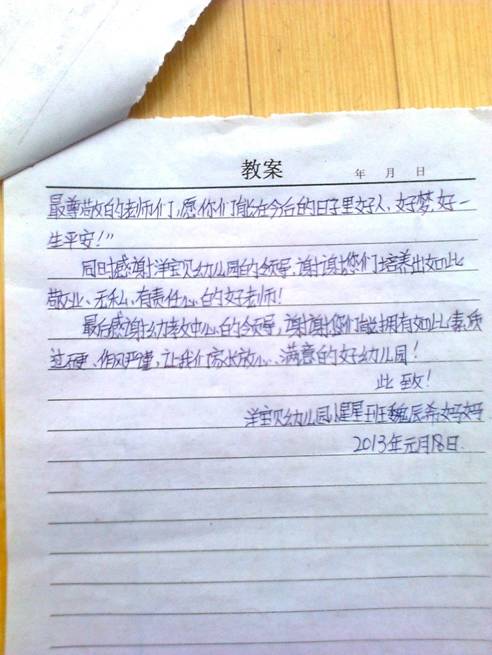 教案
年 月 日
最尊敬的老师们,愿你们能在今后的日子里好人、好梦,好一
生平安!”
同时感谢洋宝贝幼儿园的领导,谢谢您们培养出如此
敬业、无私、有责任心的好老师!
最后感谢幼教中心的领导,谢谢您们能拥有如此素质
过硬、作风严谨,让我们家长放心、满意的好幼儿园!
此致!
洋宝贝幼儿园小星星班魏辰希妈妈
2013年元月18日.